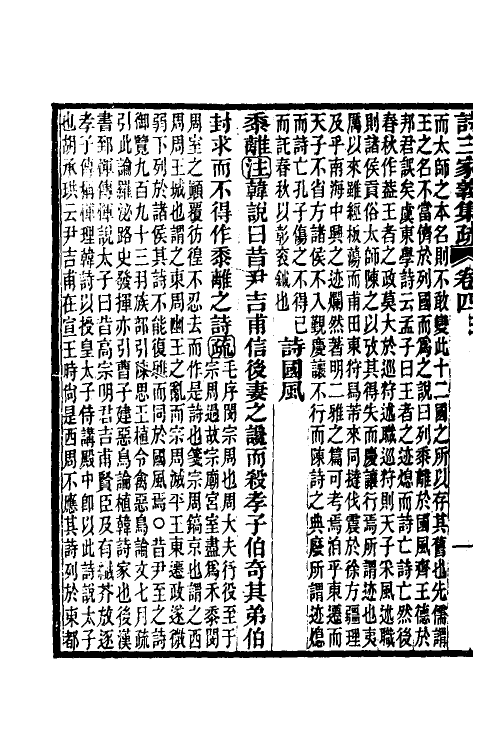 詩三家義集疏 卷四 一
而太師之本名則不敢變此十二國之所以存其舊也先儒謂
王之名不當儕於列國而爲之說曰列黍離於國風齊王德於
邦君誤矣虞東學詩云孟子曰王者之迹熄而詩亡詩亡然後
春秋作葢王者之政莫大於巡狩述職巡狩則天子采風述職
則諸侯貢俗太師陳之以攷其得失而慶讓行焉所謂迹也夷
厲以來雖經板蕩而甫田東狩舄芾來同撻伐震於徐方疆理
及乎南海中興之迹爛然著明二雅之篇可考焉洎乎東遷而
天子不省方諸侯不入覲慶讓不行而陳詩之典廢所謂迹熄
而詩亡孔子傷之不得已
而託春秋以彰衮鉞也 詩國風
黍離注韓說曰昔尹吉甫信後妻之讒而殺孝子伯奇其弟伯
封求而不得作黍離之詩疏毛序閔宗周也周大夫行役至于
宗周過故宗廟宮室盡爲禾黍閔
周室之顚覆彷徨不忍去而作是詩也箋宗周鎬京也謂之西
周周王城也謂之東周幽王之亂而宗周滅平王東遷政遂微
弱下列於諸侯其詩不能復雅而同於國風焉○昔尹至之詩
御覽九百九十三羽族部引陳思王植令禽惡鳥論文七月疏
引此論羅泌路史發揮亦引曹子建惡鳥論植韓詩家也後漢
書郅惲傳惲說太子曰昔高宗明君吉甫賢臣及有纎芥放逐
孝子傳稱惲理韓詩以授皇太子侍講殿中卽以此詩說太子
也胡承珙云尹吉甫在宣王時尙是西周不應其詩列於東都